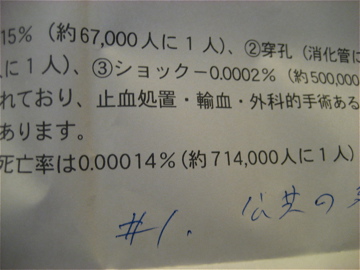 15%（約67,000人に1人）、②穿孔（消化管に
人に1人）、③ショックー0.0002%（約500,000
れており、止血処置・輸血・外科的手術ある
あります。
死亡率は0.00014%（約714,000人に1人）
#1. 公共の